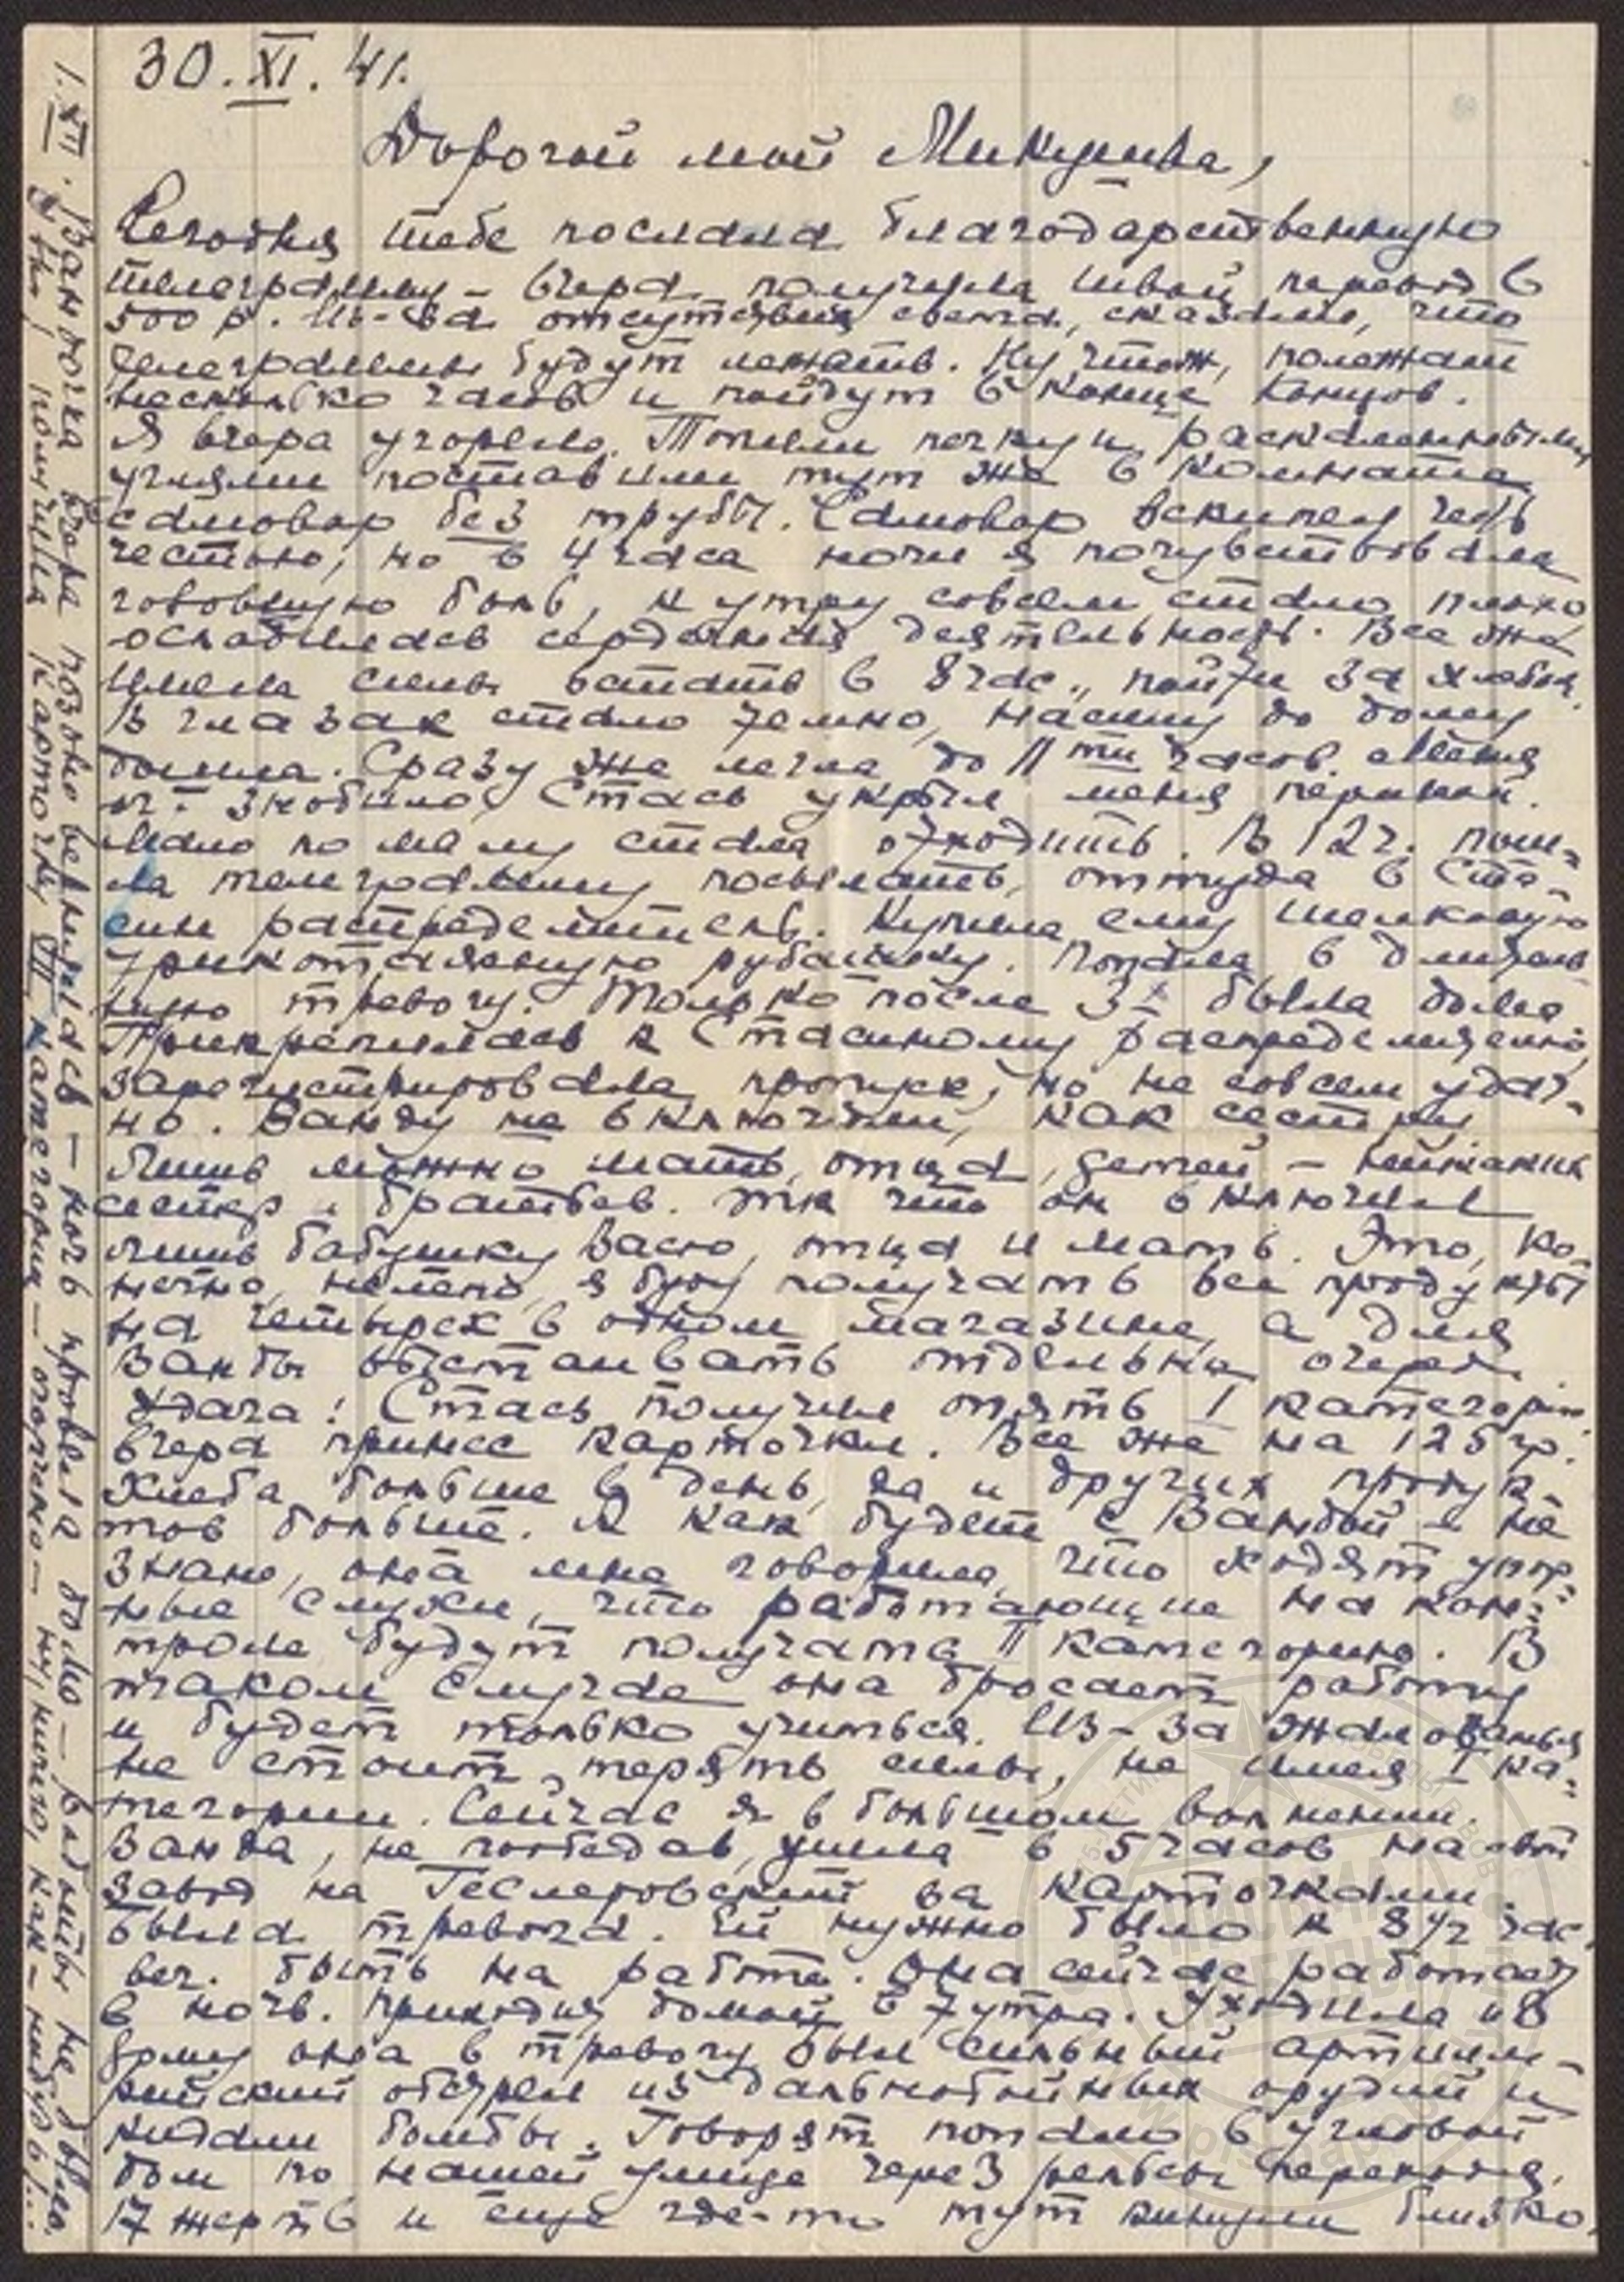 30.XI.41.
Дорогой мой Микушка,
Сегодня тебе послала благодарственную
телеграмму – вчера получила твой перевод в
500 р. Из-за отсутствия света, сказали, что
телеграммы будут лежать. Ну что ж, полежат
несколько часов и пойдут в конце концов.
Я вчера угорела. Топили печку и раскаленными
углями поставили тут же в комнате
самовар без трубы. Самовар вскипел честь
честью, но в 4 часа ночи я почувствовала
головную боль, к утру совсем стало плохо
ослабилась сердечная деятельность. Все же
имела силы встать в 8 час., пойти за хлебом.
В глазах стало темно, насилу до дому
дошла. Сразу же легла до 11ти часов. Меня
знобило, Стась укрыл меня периной.
Мало по малу стала отходить. В 12 ч. пош-
ла телеграмму посылать, оттуда в Ста-
син распределитель. Купила ему шелковую
трикотажную рубашку. Попала в длитель
ную тревогу. Только после 3х была дома
Прикрепилась к Стасиному распределителю,
зарегистрировала пропуск, но не совсем удач-
но. Ванду не включили, как сестру
Лишь можно мать, отца, детей – никаких
сестер и братьев. Так что он включил
лишь бабушку Васю, отца и мать. Это, ко-
нечно, нелепо, я буду получать все продукты
на четырех в одном магазине, а для
Ванды выстаивать отдельно очередь.
Удача! Стась получил опять I категорию
вчера принес карточки. Все же на 125 гр.
хлеба больше в день, да и других продук-
тов больше. А как будет с Вандой – не
знаю, она мне говорила, что ходят упор-
ные слухи, что работающие на кон-
троле будут получать II категорию. В
таком случае она бросает работу
и будет только учиться. Из-за жалованья
не стоит терять силы, не имея I ка-
тегории. Сейчас я в большом волнении.
Ванда, не пообедав, ушла в 5 часов на свой
завод на Геслеровский за карточками.
Была тревога. Ей нужно было к 8 1/2 час.
веч. быть на работе. Она сейчас работает
в ночь. Приходит домой в 7 утра. Уходила из
дому она в тревогу был сильный артилле-
рийский обстрел из дальнобойных орудий и
кидали бомбы. Говорят попало в угловой
дом по нашей улице через рельсы перехода.
17 жертв и еще где-то тут кинули близко.
1.XII. Вандочка вчера поздно вернулась – ночь провела дома – работы не было.
получила карточку, II категории – огорчена – ну, ничего, как-нибудь!...
ПИСЬМА
ПОБЕДЫ